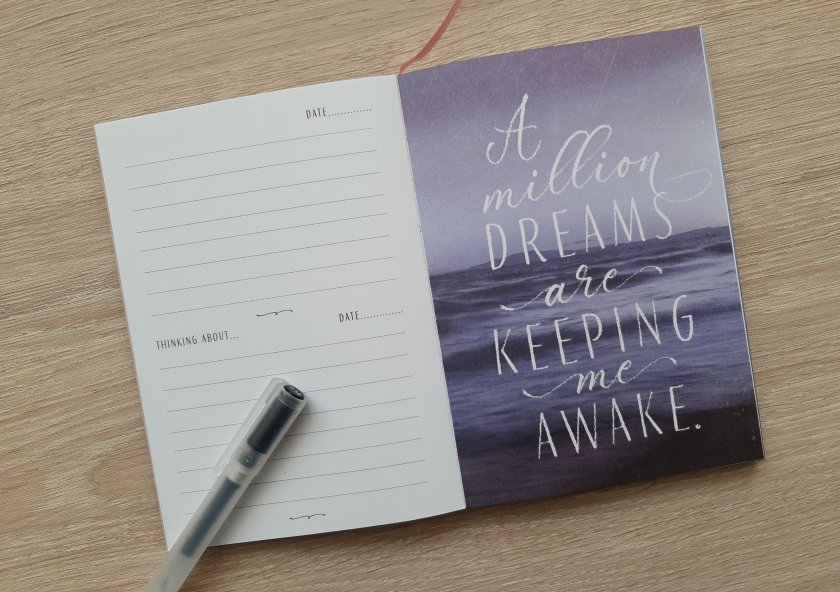 DATE..............
DATE..............
THINKING ABOUT...
A
million
DREAMS
are
KEEPING
me
AWAKE.